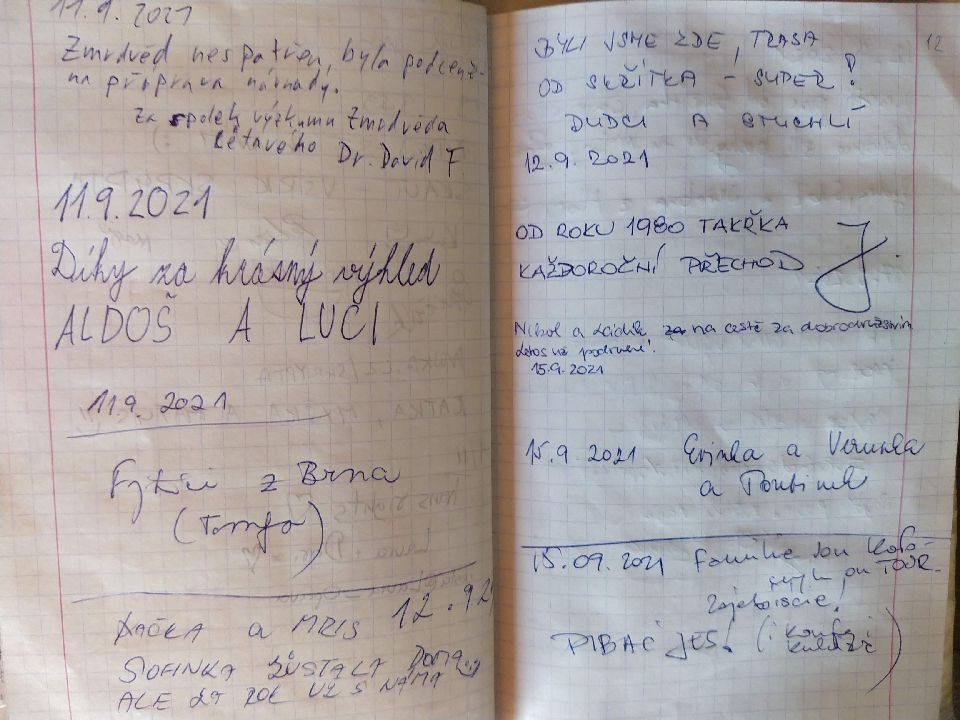 11.9.2021
Zmrdvěd nespatřen, byla podceně-
na příprava návnady.
Za spolek výzkumu Zmrdvěda
Létavého Dr. David F.
11.9.2021
Díky za krásný výhled
ALDOŠ A LUCI
11.9. 2021
z Brna
KAČKA a MRIS 12.9.21
SOFINKA ZŮSTALA DOMA
ALE ZA ROK UŽ S NÁMA
12
BYLI JSME ZDE, TRASA
OD SKŘÍTKA - SUPER!
DUDCI A STUCHLÍ
12.9. 2021
OD ROKU 1980 TAKŘKA
KAŽDOROČNÍ PŘECHOD
a na cestě za dobrodružstvím
letos už podruhé!
15.9.2021
15.9 2021 Evinka a Verunka
a
15.09.2021 Familie von
on TOUR.
Zajebiście!
PIBAČ JES!